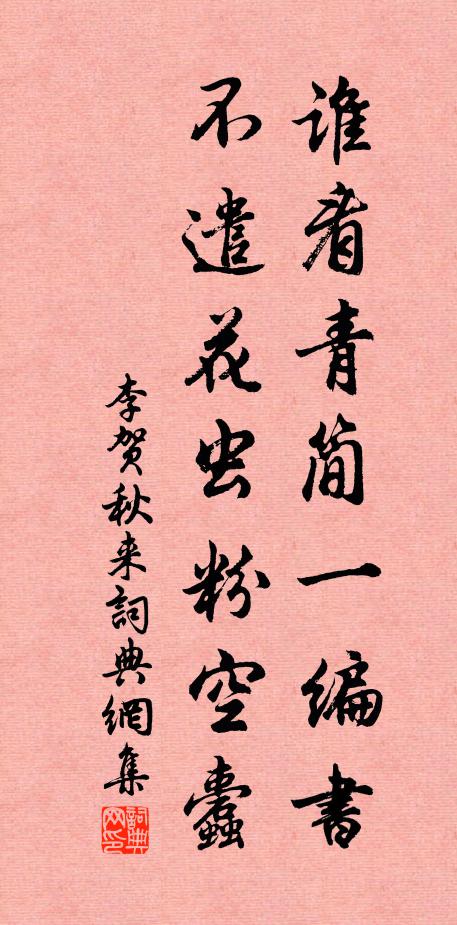 谁看青简一编书
不遣花虫粉空蠹
李贺秋来詞典網集
詞典网印